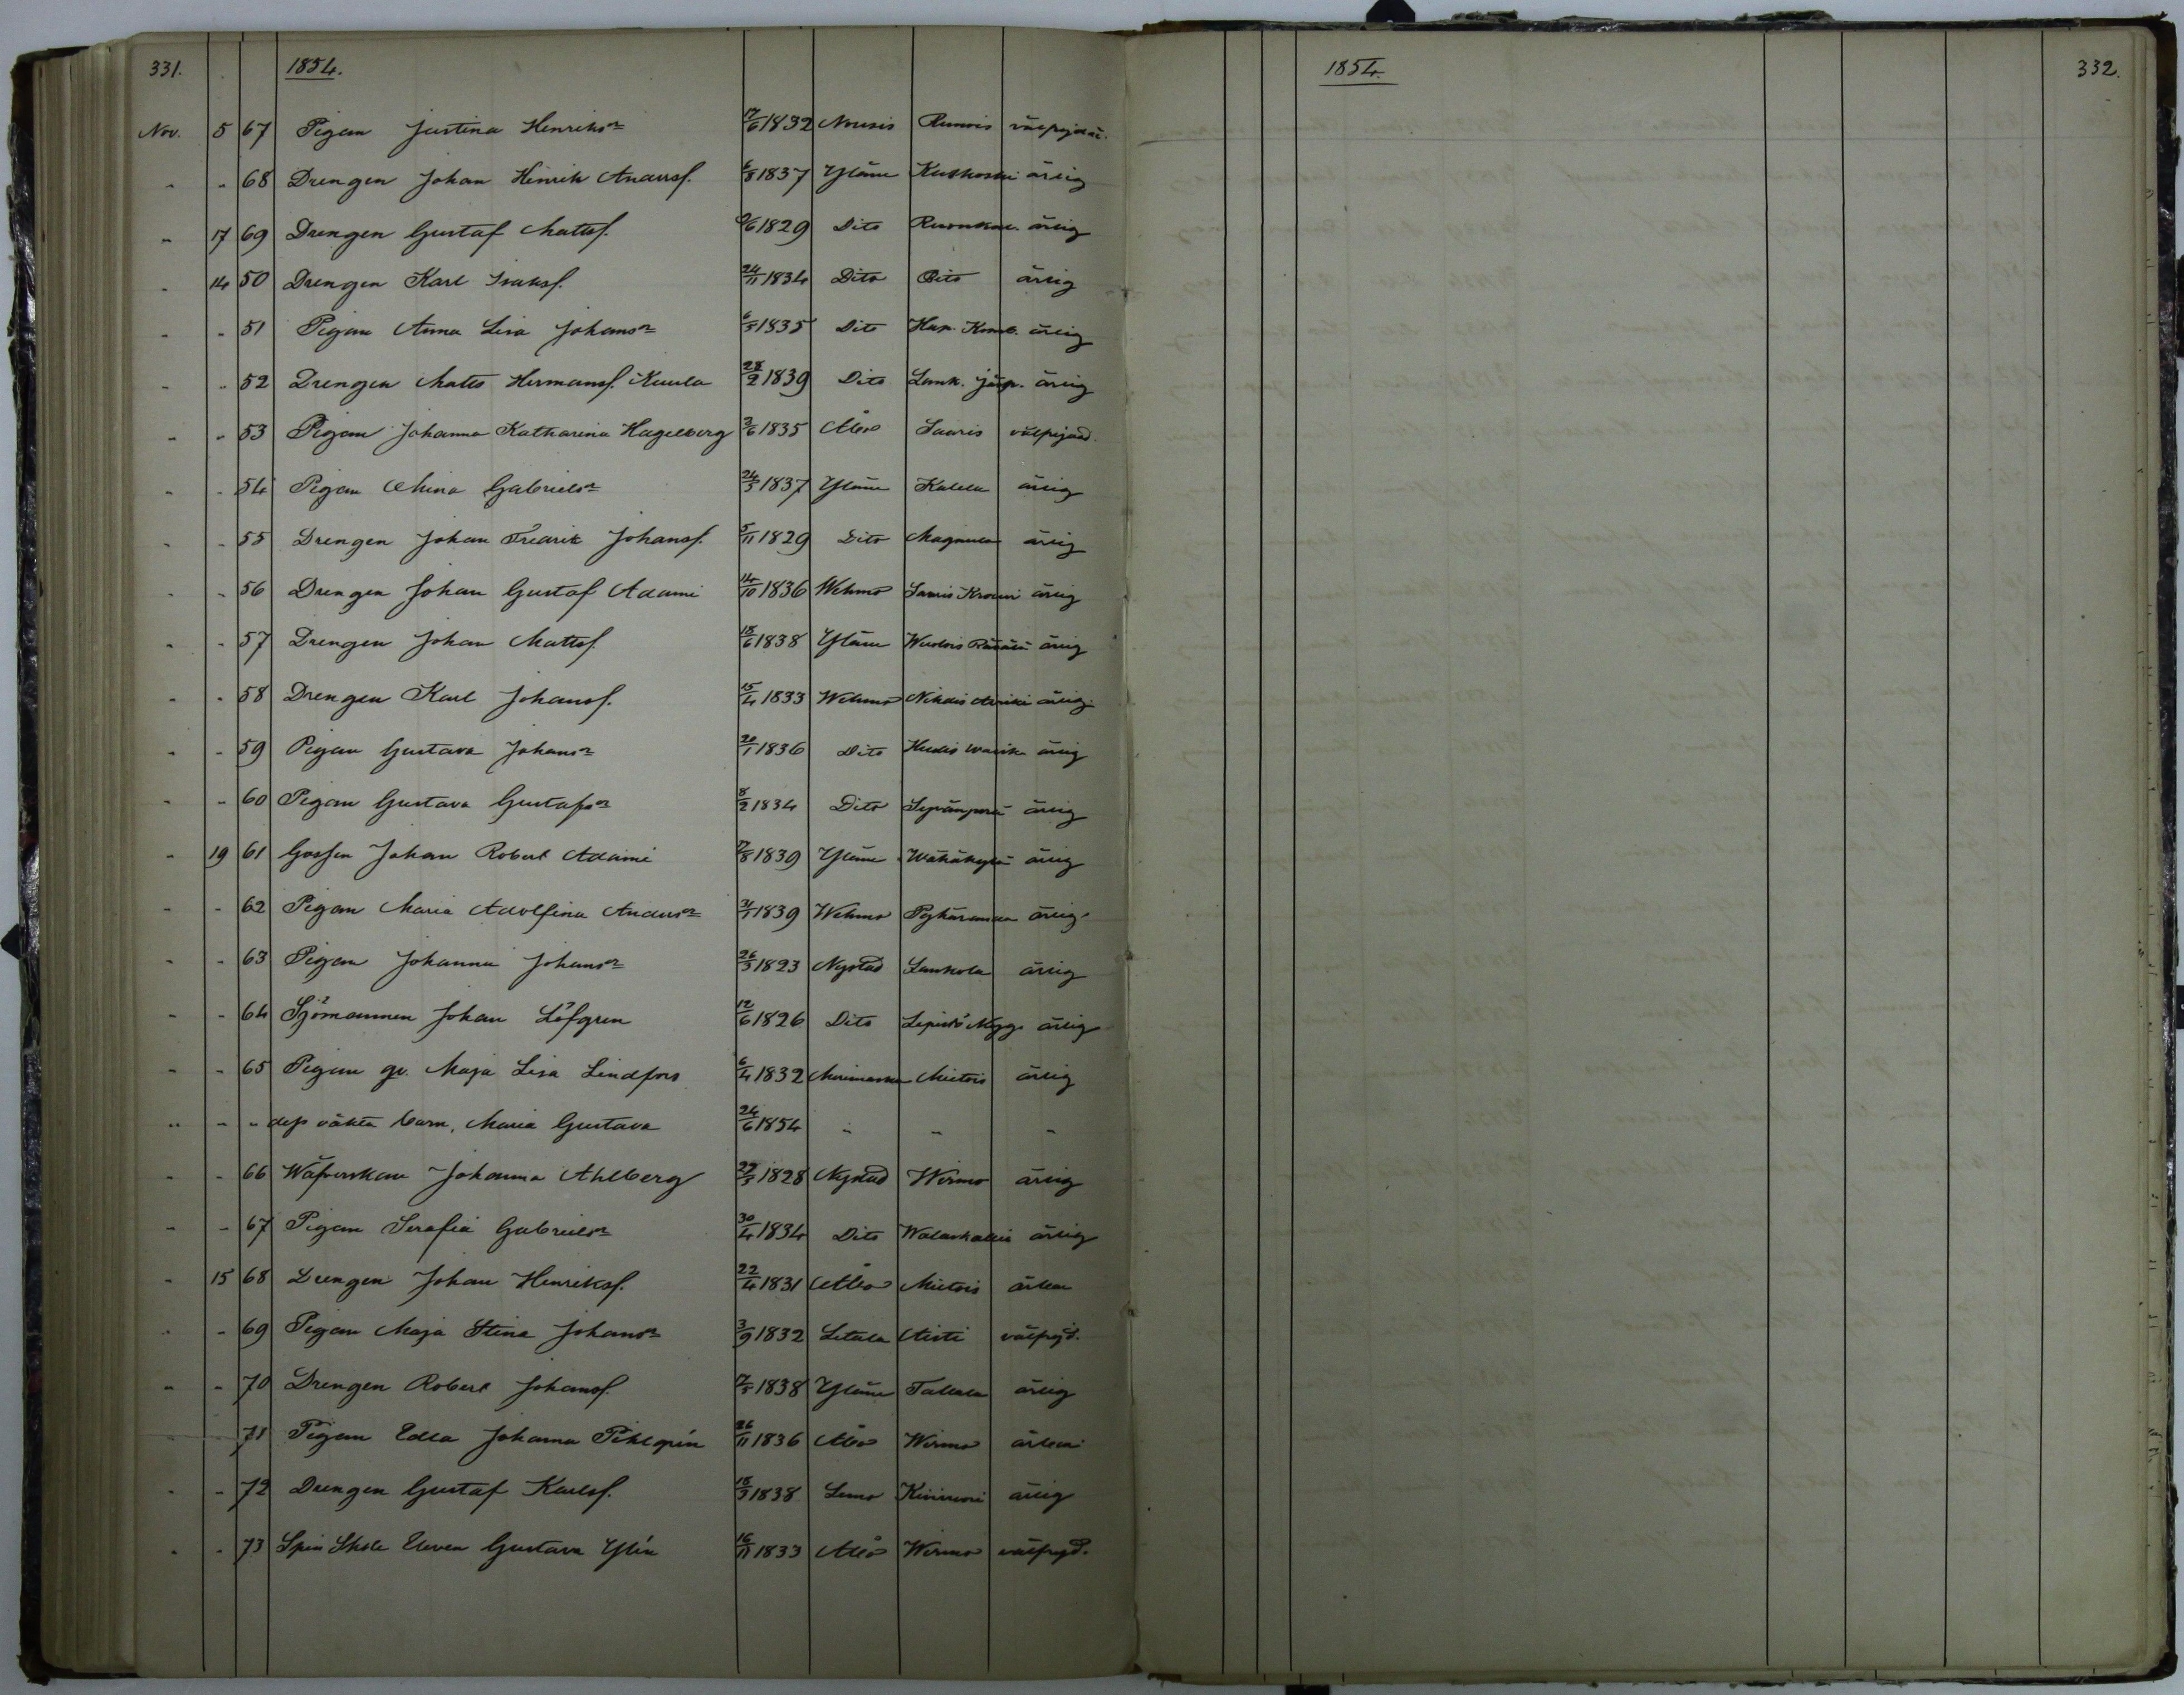 331. 1854.
Nov. 5 67 Pigan Justina Henriksr 17/6 1832 Nousis Runois välfrejdad.
" " 68 Drengen Johan Henrik Andersf. 6/8 1837 Yläne Kuskoski ärlig
" 17 69 Drengen Gustaf Mattsf. 1829 Dito ärlig
" 14 50 Drengen Karl Isaksf. 24/11 1834 Dito Dito ärlig
" " 51 Pigan Anna Lisa Johansr 1835 Dito ärlig
" " 52 Drengen Matts Hermansf. Kuula 28/2 1839 Dito Lank. ärlig
" " 53 Pigan Johanna Katharina Hagelberg 3/6 1835 Åbo Sauris välfrejdad.
" " 54 Pigan Mina Gabrielsr 24/3 1837 Yläne Kalela ärlig
" " 55 Drengen Johan Fredrik Johansf. 5/11 1829 Dito Magnula ärlig
" " 56 Drengen Johan Gustaf Adami 14/10 1836 Wehmo Sauris Krouvi ärlig
" " 57 Drengen Johan Mattsf. 18/6 1838 Yläne Wuolois Räsälä ärlig
" " 58 Drengen Karl Johansf. 15/4 1833 Wehmo Nihdis ärlig
" " 59 Pigan Gustava Johansr 20/1 1836 Dito ärlig
" " 60 Pigan Gustava Gustafsr 8/2 1834 Dito Syvänperä ärlig
" 19 61 Gossen Johan Robert Adami 7/8 1839 Yläne Wähäkylä ärlig
" " 62 Pigan Maria Adolfina Andersr 1839 Wehmo Pyhäranda ärlig
" " 63 Pigan Johanna Johansr 26/3 1823 Nystad Laukola ärlig
" " 64 Sjömannen Johan Löfgren 12/6 1826 Dito Lepistö ärlig
" " 65 Pigan qv. Maja Lisa Lindfors 6/4 1832 Merimasku Mietois ärlig
" " " dess oäkta barn, Maria Gustava 24/6 1854 " " "
" " 66 Wäfverskan Johanna Ahlberg 1828 Nystad Wirmo ärlig
" " 67 Pigan Serafia Gabrielsr 30/4 1834 Dito Walaskallio ärlig
" 15 68 Drengen Johan Henriksf. 22/4 1831 Åbo Mietois ärkän
" " 69 Pigan Maja Stina Johansr 3/9 1832 Letala Aisti välfrejd.
" " 70 Drengen Robert Johansf. 1838 Yläne Tallela ärlig
" " 71 Pigan Edla Johanna Pihlgrén 26/11 1836 Åbo Wirmo ärkän
" " 72 Drengen Gustaf Karlsf. 18/3 1838 Lemo Kivivuori ärlig
" " 73 Spin Skole Eleven Gustava Ylén 16/11 1833 Åbo Wirmo välfrejd.
1854. 332.